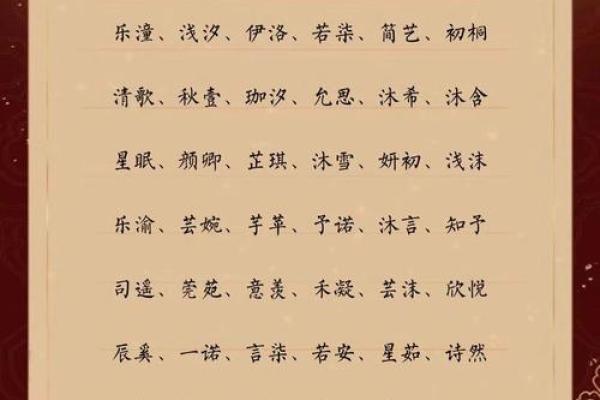 乐潼、浅汐、伊洛、若柒、简艺、初桐
清歌、秋壹、珈汐、允思、沐希、沐含
星眠、颜卿、芷琪、沐雪、妍初、浅沫
乐渝、芸婉、芋苹、予诺、沐言、知予
司遥、莞苑、意羡、禾凝、芸沫、欣悦
辰奚、一诺、言柒、若安、星茹、诗然